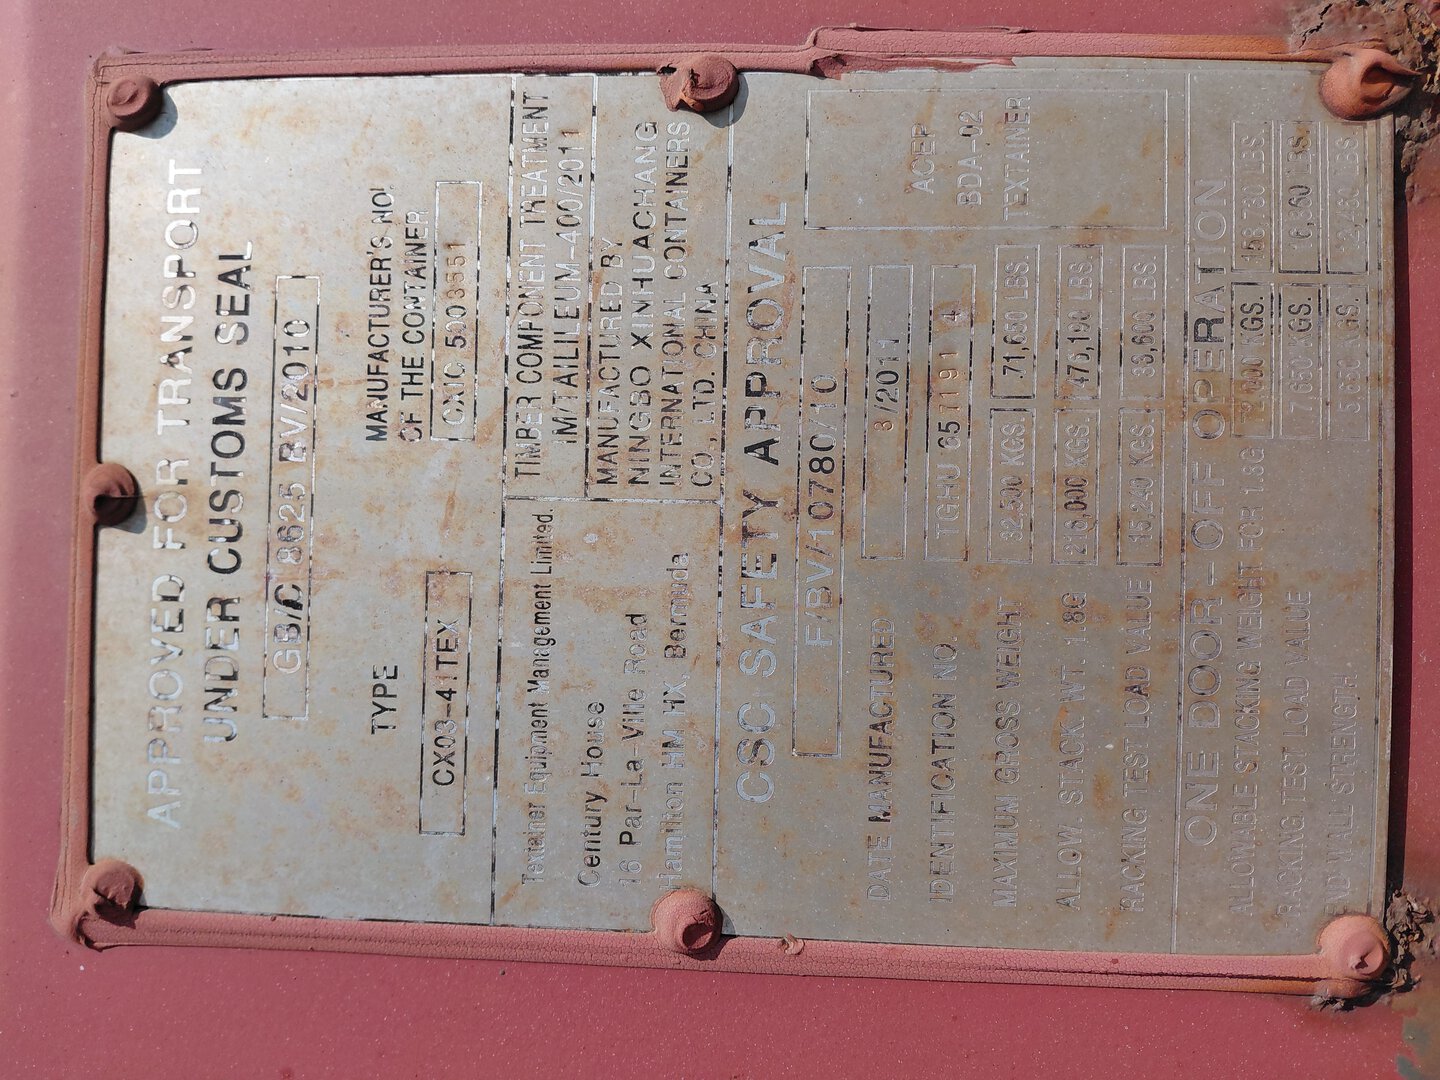 APPROVED FOR TRANSPORT
UNDER CUSTOMS SEAL
GB/C 8625 BV/2010
TYPE
CX03-41TEX
MANUFACTURER'S NO.
OF THE CONTAINER
CXNC 5003551
Textainer Equipment Management Limited.
Century House
16 Par-La-Ville Road
Hamilton HM HX, Bermuda
TIMBER COMPONENT TREATMENT
IM/TAILILEUM-400/2011
MANUFACTURED BY
NINGBO XINHUACHANG
INTERNATIONAL CONTAINERS
CO., LTD. CHINA
CSC SAFETY APPROVAL
F/BV/10780/10
ACEP
BDA-02
TEXTAINER
DATE MANUFACTURED 3/2011
IDENTIFICATION NO. TGHU 657191 4
MAXIMUM GROSS WEIGHT 32,500 KGS. 71,650 LBS.
ALLOW. STACK. WT. 1.8G 216,000 KGS. 476,190 LBS.
RACKING TEST LOAD VALUE 15,240 KGS. 33,600 LBS
ONE DOOR-OFF OPERATION
ALLOWABLE STACKING WEIGHT FOR 1.8G KGS. LBS.
RACKING TEST LOAD VALUE KGS. LBS.
END WALL STRENGTH KGS. LBS.